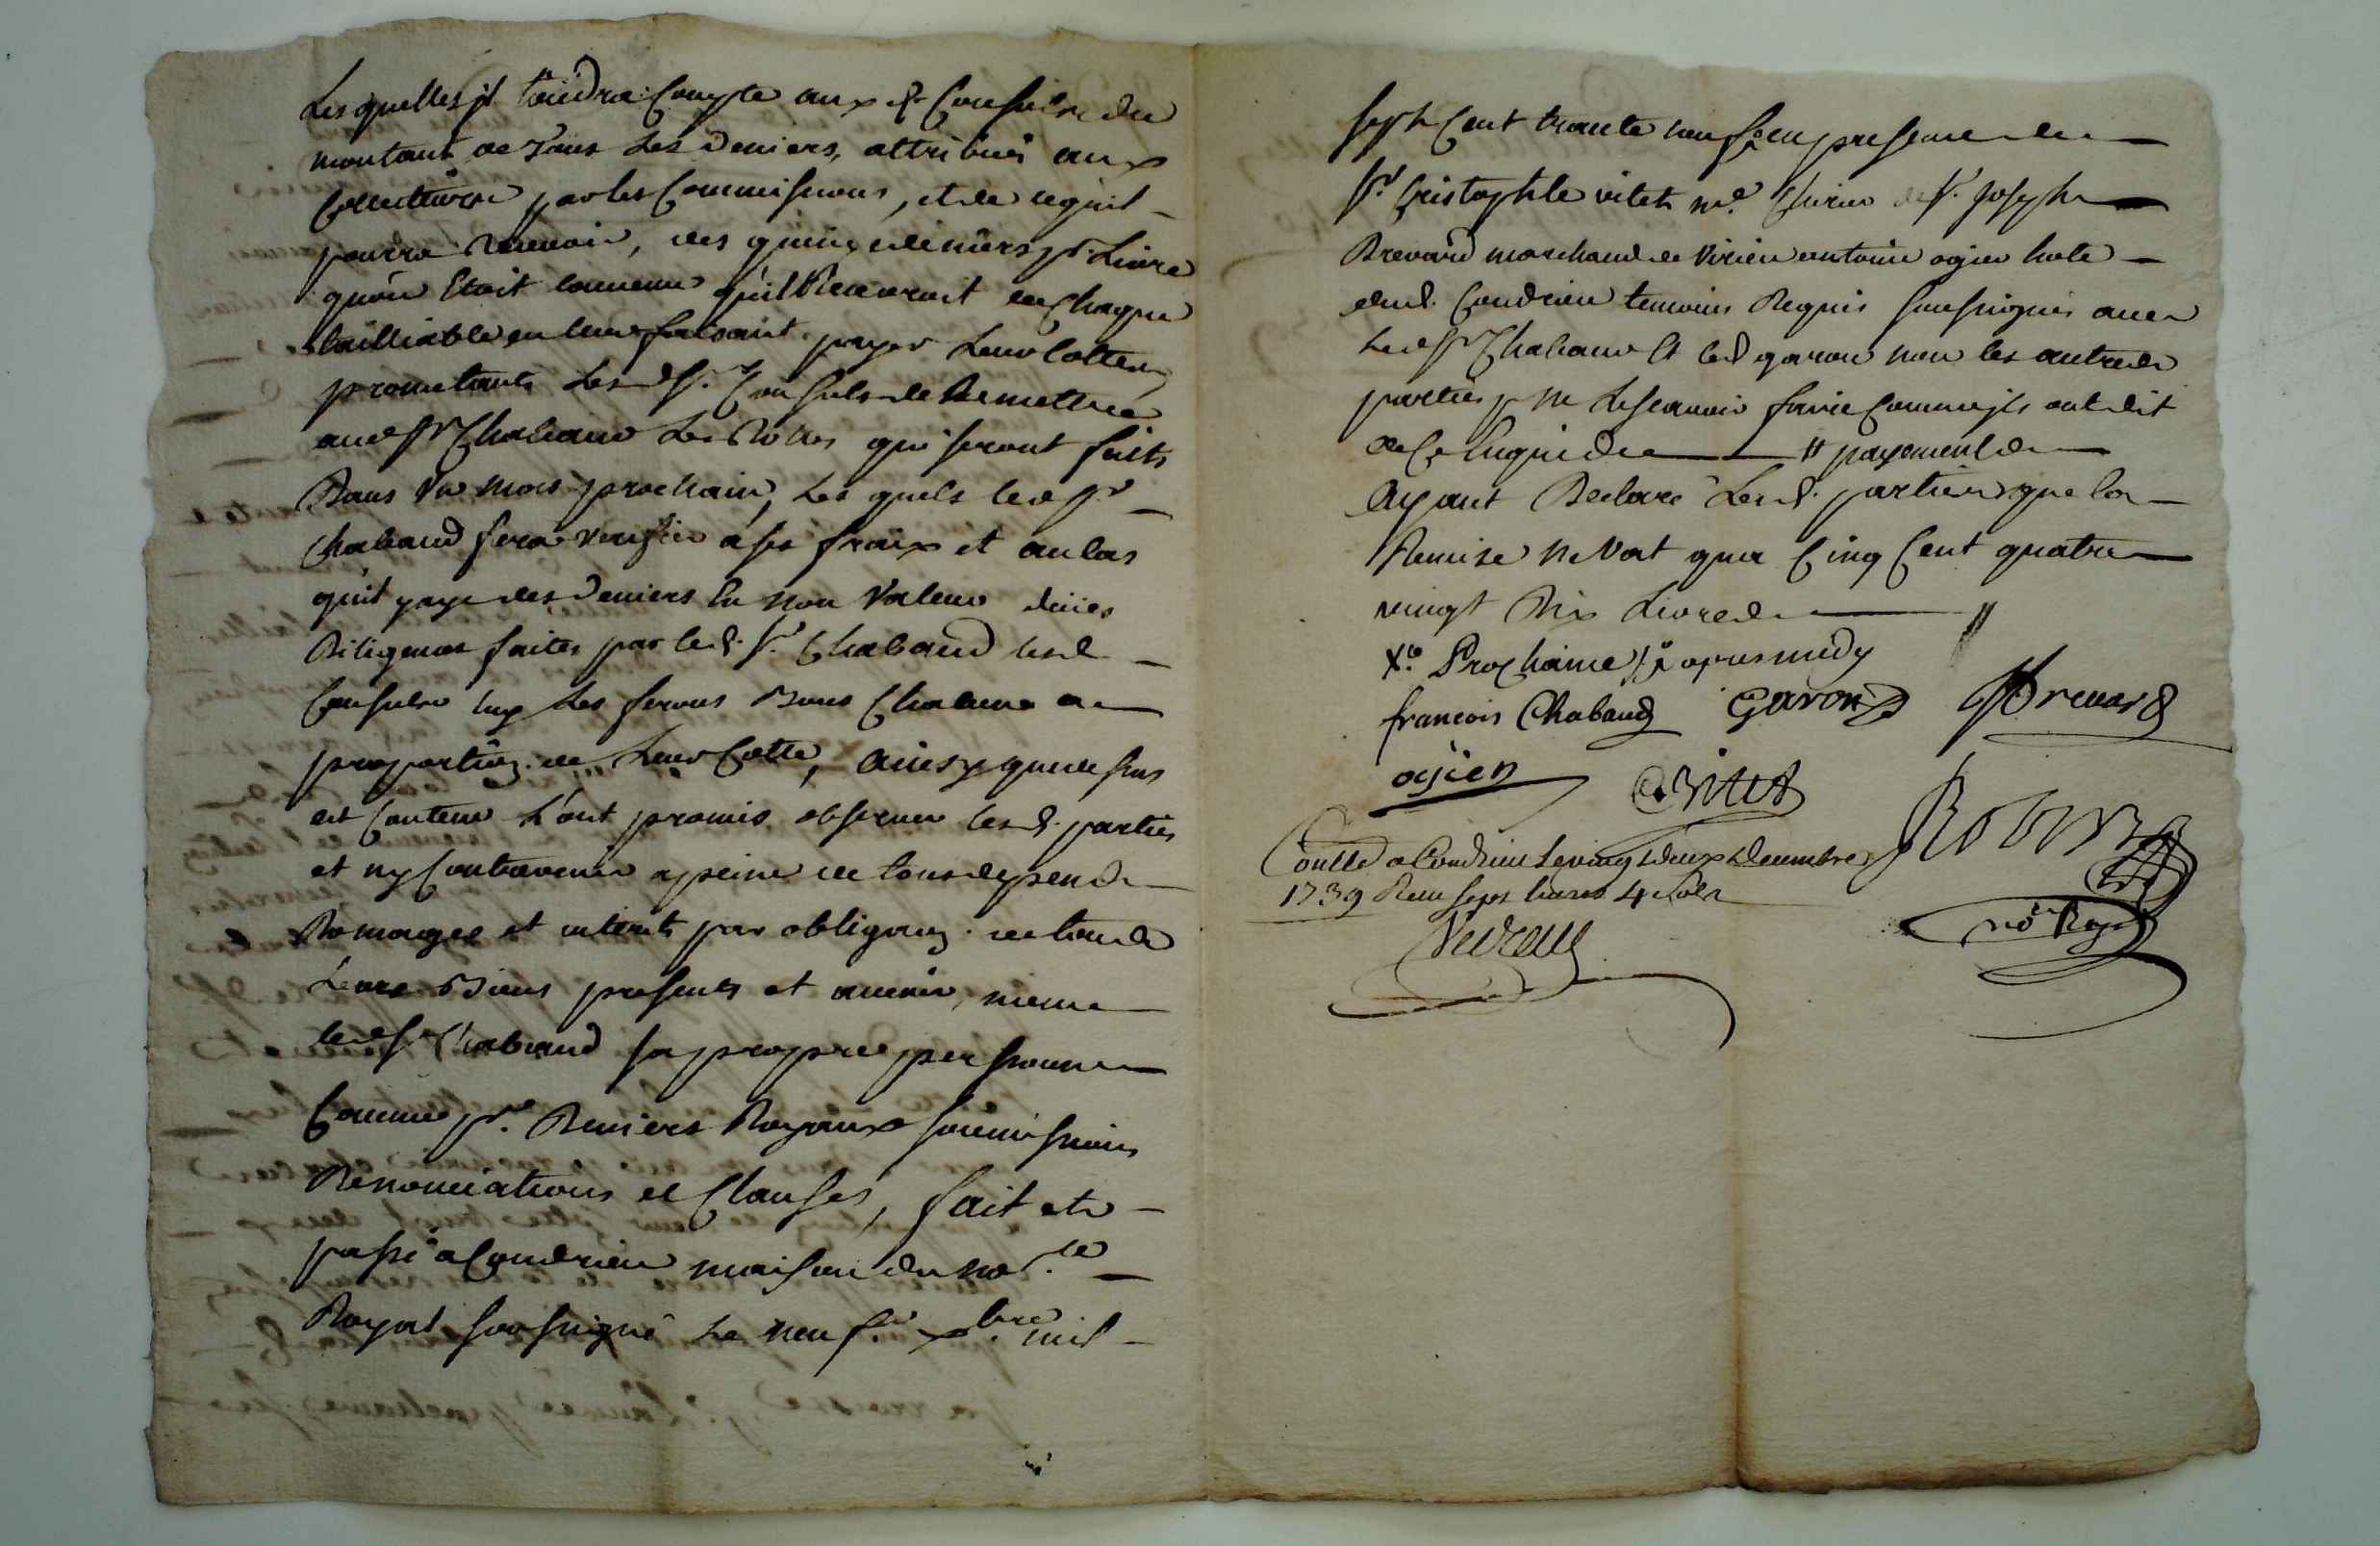 Les quelles jl tiendra Compte aux d. Consuls du
montant de Tous Les Deniers, attribués aux
Collecteurs par les Commissions, et de ce quil
pourra recevoir, des quinze deniers pr. Livre
qu'on Etoit convenu quil Recevroit de Chaque
tailliable en leur faisant payer Leur Cotte
promettants Lesd. Srs. Consuls de Remettre
aud. Sr Chabaud Les Rolles qui seront faits
Dans un mois prochain, Les quels led. Sr
Chabaud fera verifier a ses fraix et au cas
quil paye des Deniers En non Valeur duües
Diligences faites par led. Sr. Chabaud lesd.
Consuls Les seront Bons Chacun a
proportion de Leur Cotte, ainsy que dessus
est Contenu L'ont promis observer lesd. parties
et ny Contrevenir a peine de tous depends
Domages et interets par obligaon. de tous
Leurs Biens presents et avenir, meme
led. Sr Chabaud sa propre personne
Comme pr. Deniers Royaux soumissions
Renonciations et Clauses, fait et
passé a Condrieu maison du nore.
Royal soussigné Le neufe. xbre. mil
sept Cent trante neuf en presence de
Sr. Cristophle vitet me. Sr. Joseph
Brevard marchand de Virieu antoine ogier hote
dud. Condrieu temoins Requis soussignés avec
Led. Sr Chabaud et led. garon non les autres
parties pr. ne Le scavoir faire Comme jls ont dit
de Ce Enquis // payement
Ayant Declaré Lesd. parties que la
Remise ne Vat qua Cinq Cent quatre
vingt Dix Livres //
Prochaine apres midy
francois Chabaud Garon JBrevard
ogier C. Vitet
Conllé a Condrieu Le vingt deux decembre
1739 Reçu sept livres 4 sols
nore. Royal